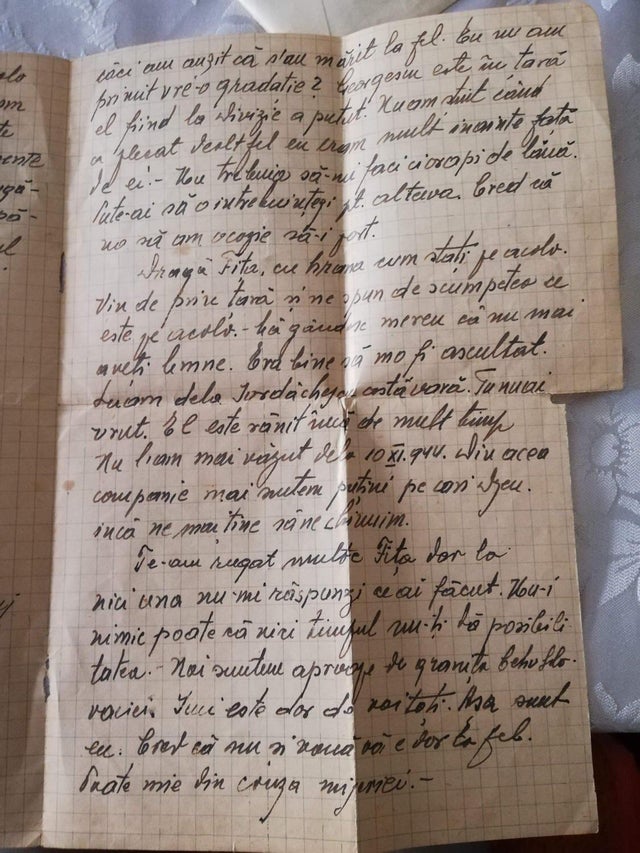 olo
am
te
mente
gă-
pă-
ul
căci am auzit că s'au mărit la fel. Eu nu am
primit vre-o gradatie? Georgescu este în tară
el fiind la Divizie a putut. Nu am știut când
a plecat dealtfel eu eram mult inainte fată
de ei.- Nu trebuia să-mi faci ciorapi de lână.
Pute-ai să o intrebuintezi pt. altceva. Cred că
no să am ocazie să-i port.
Dragă Fita, cu hrana cum stati pe acolo.
Vin de prin tară si ne spun de scumpetea ce
este pe acolo.- Mă gândesc mereu că nu mai
aveti lemne. Era bine să mă fi ascultat.
Luam dela Iordăchescu astă vară. Tu nu ai
vrut. El este rănit încă de mult timp
Nu l-am mai văzut dela 10 XI.944. Din acea
companie mai suntem putini pe cari Dzeu.
incă ne mai tine să ne chinuim.
Te-am rugat multe Fița dar la
nici una nu-mi răspunzi ce ai făcut. Nu-i
nimic poate că nici timpul nu-ti dă posibili
tatea.- Noi suntem aproape de granita Cehoslo-
vaciei. Imi este dor de voi toti. Asa sunt
eu. Cred că nu si vouă vă e dor la fel.
Poate mie din cauza